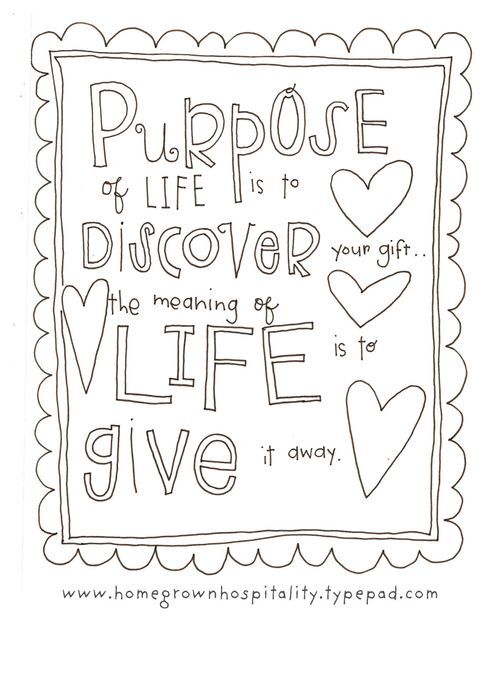 PuRpOSE
of LIFE is to
DiSCOVeR your gift..
the meaning of
LIFE is to
give it away.
www.homegrownhospitality.typepad.com